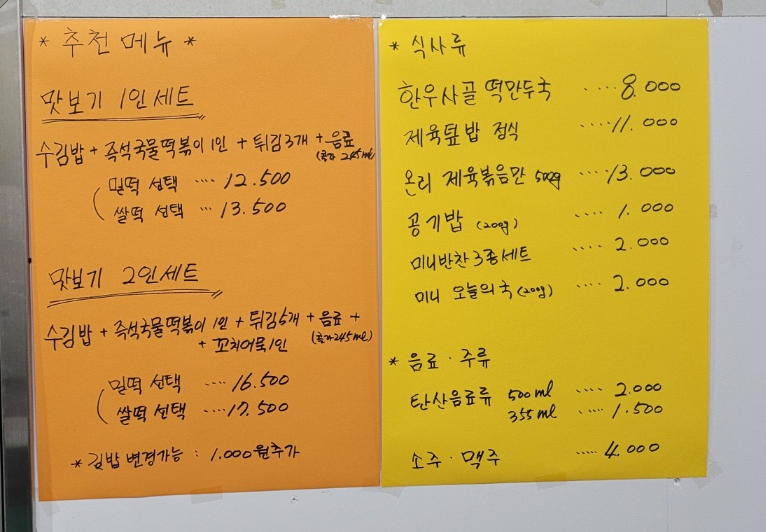 * 추천메뉴 *
맛보기 1인세트
수김밥 + 즉석국물떡볶이 1인 + 튀김3개 + 음료
(콜라 245ml)
밀떡 선택 .... 12.500
쌀떡 선택 ... 13.500
맛보기 2인세트
수김밥 + 즉석국물떡볶이 1인 + 튀김5개 + 음료 +
(콜라245ml)
+ 꼬치어묵1인
밀떡 선택 .... 16.500
쌀떡 선택 .... 17.500
* 김밥 변경가능 : 1.000원추가
* 식사류
한우사골 떡만두국 ..... 8.000
제육덮밥 정식 ..... 11.000
온리 제육볶음만 500g ..... 13.000
공기밥 (200g) ..... 1.000
미니반찬3종세트 ..... 2.000
미니 오늘의국 (200g) ..... 2.000
* 음료 · 주류
탄산음료류 500ml ..... 2.000
355ml ..... 1.500
소주 · 맥주 ..... 4.000